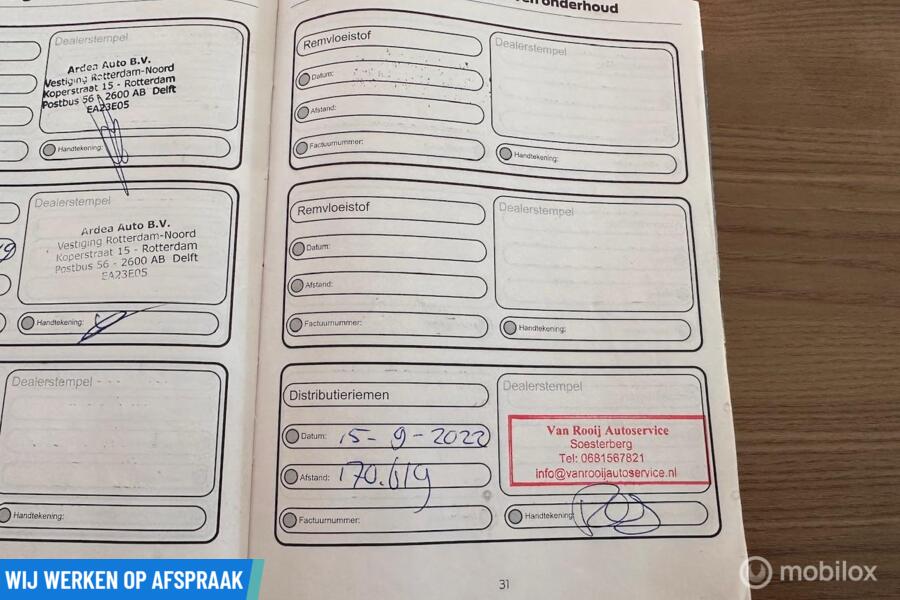 onderhoud
Dealerstempel
Ardea Auto B.V.
Vestiging Rotterdam-Noord
Koperstraat 15 - Rotterdam
Postbus 56 - 2600 AB Delft
EA23E05
Handtekening:
Dealerstempel
Ardea Auto B.V.
Vestiging Rotterdam-Noord
Koperstraat 15 - Rotterdam
Postbus 56 - 2600 AB Delft
EA23E05
Handtekening:
Dealerstempel
Handtekening:
Remvloeistof
Datum:
Afstand:
Factuurnummer:
Dealerstempel
Handtekening:
Remvloeistof
Datum:
Afstand:
Factuurnummer:
Dealerstempel
Handtekening:
Distributieriemen
Datum: 15-9-2022
Afstand: 170.619
Factuurnummer:
Dealerstempel
Van Rooij Autoservice
Soesterberg
Tel: 0681567821
info@vanrooijautoservice.nl
Handtekening:
31
WIJ WERKEN OP AFSPRAAK
mobilox